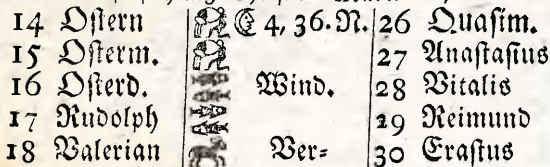 14 Oſtern ☾ 4, 36. N. 26 Quaſim.
15 Oſterm. 27 Anaſtaſius
16 Oſterd. Wind. 28 Vitalis
17 Rudolph 29 Reimund
18 Valerian Ver= 30 Eraſtus